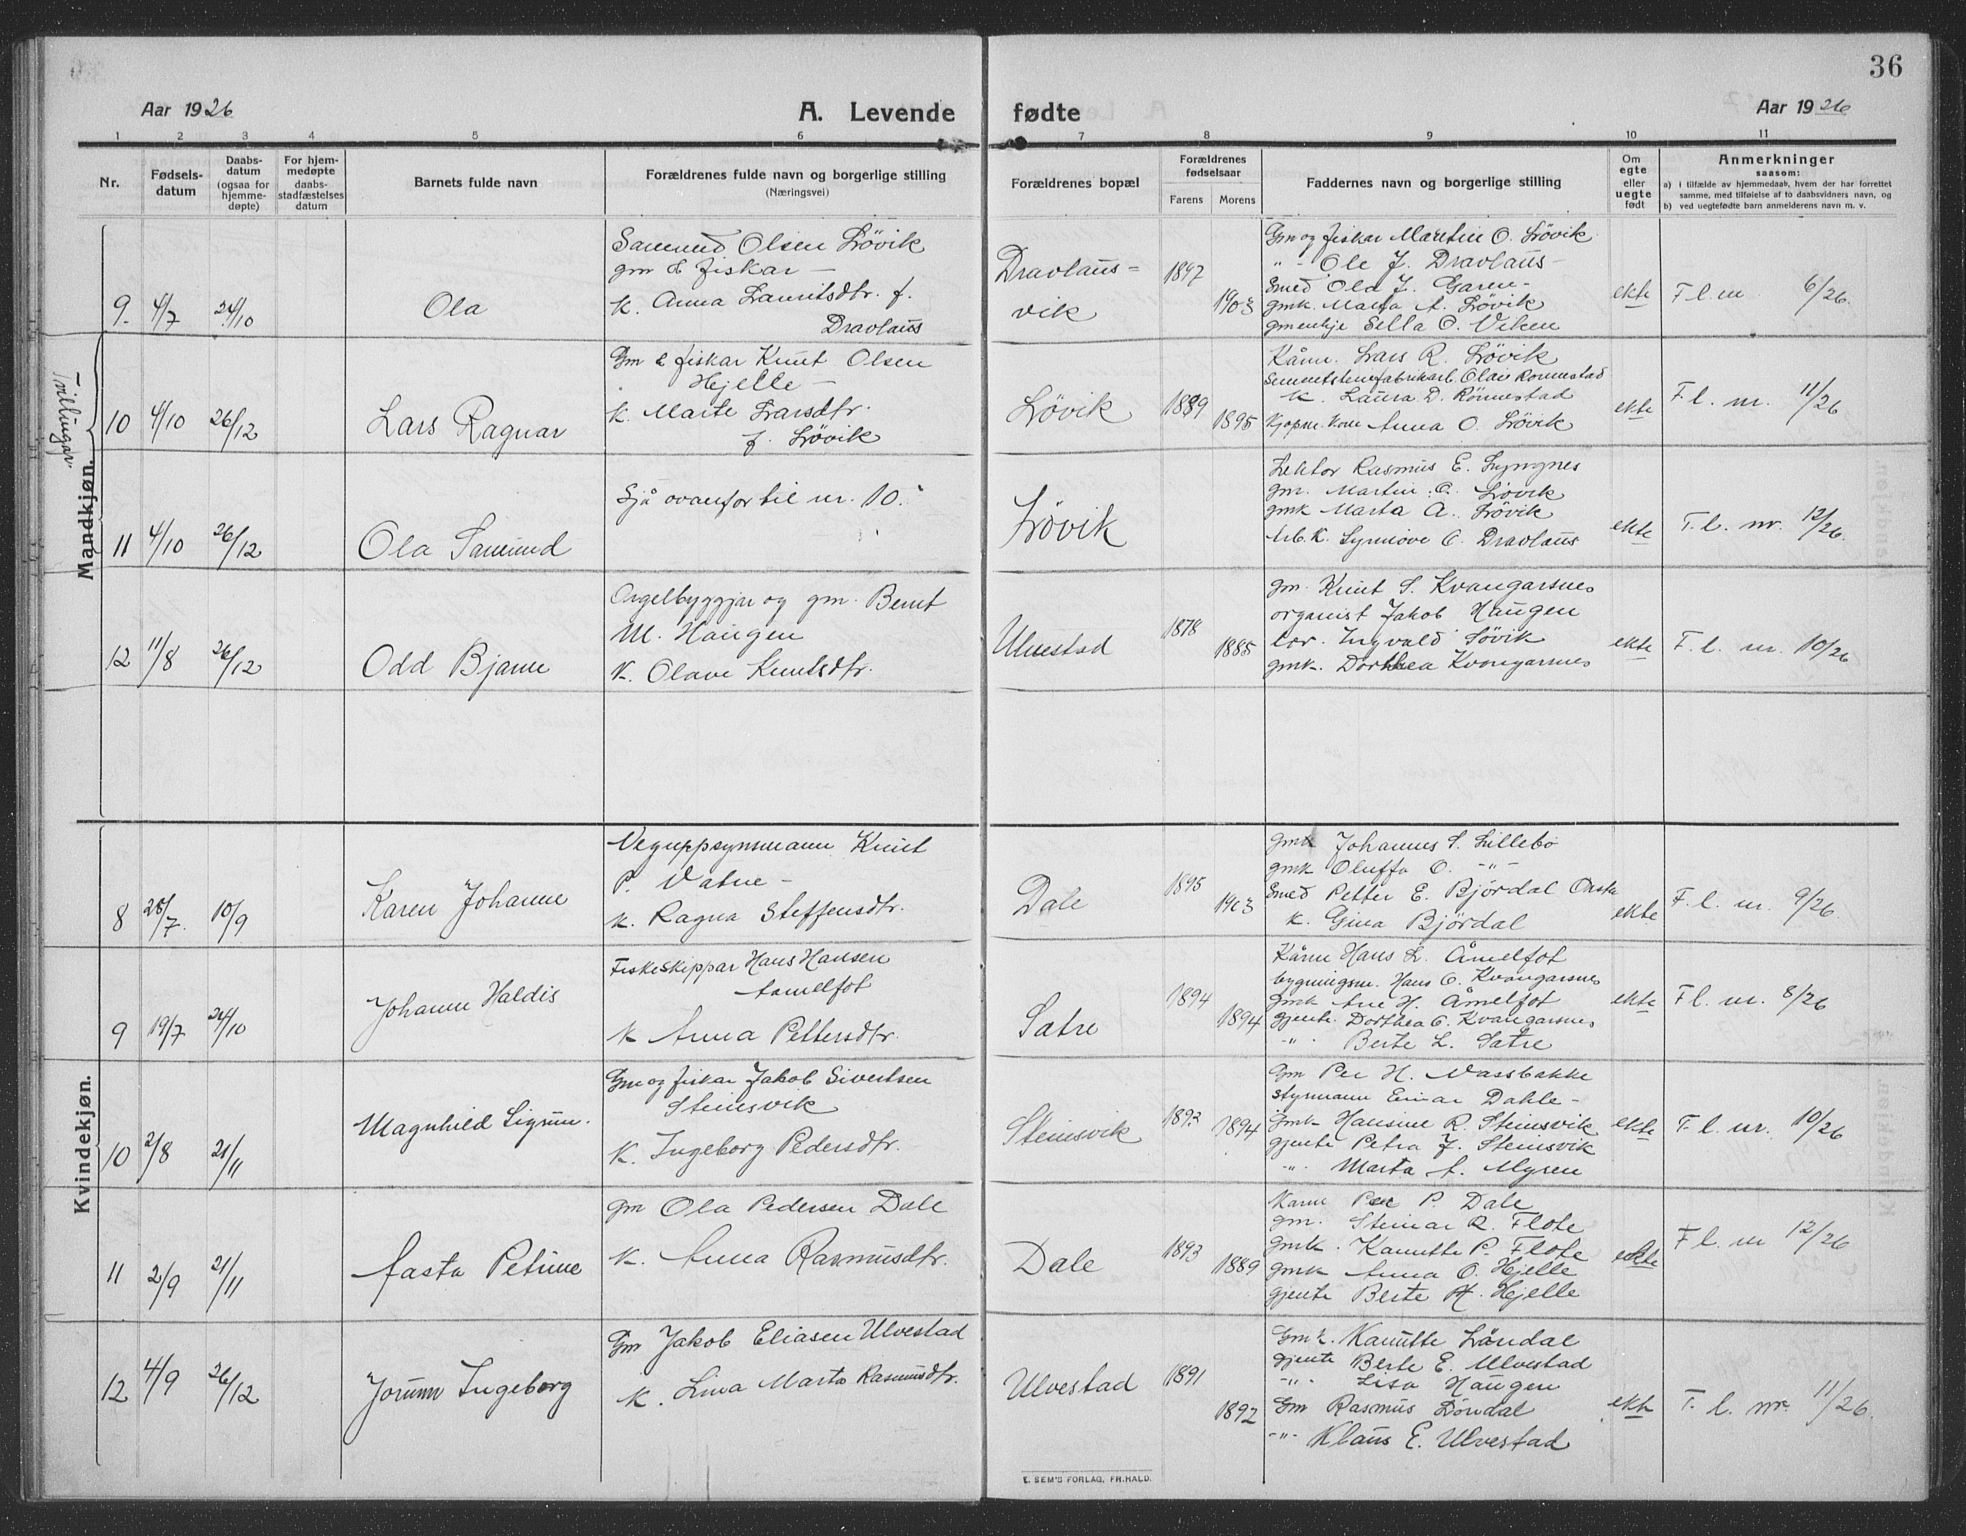 36
Aar 1926
A. Levende fødte
Aar 1926
1 2 3 4 5 6 7 8 9 10 11
Nr.
Fødsels-
datum
Daabs-
datum
(ogsaa for
hjemme-
døpte)
For hjem-
medøpte
daabs-
stadfæstelses
datum
Barnets fulde navn
Forældrenes fulde navn og borgerlige stilling
(Næringsvei)
Forældrenes bopæl
Forældrenes
fødselsaar
Farens Morens
Faddernes navn og borgerlige stilling
Om
egte
eller
uegte
født
Anmerkninger
saasom:
a) i tilfælde av hjemmedaab, hvem der har forrettet
samme, med tilføielse af to daabsvidners navn, og
b) ved uegtefødte barn anmelderens navn m. v.
Mandkjøn.
Tvillingar
9. 4/7 24/10
Ola
Samund Olsen Løvik
gm & fiskar —
K. Anna Lauritsdtr. f.
Dravlaus
Dravlaus-
vik
1897
1903
Gm og fiskar Martin O. Løvik
" - Ole J. Dravlaus -
Smed Ola J. Garen -
gmk. Marta A. Løvik
gmenkje Sella O. Viken
ekte
F. l. nr 6/26.
10 4/10 26/12
Lars Ragnar
Gm & fiskar Knut Olsen
Hjelle —
K. Marte Larsdtr.
f. Løvik
Løvik
1889
1895
Kårm. Lars R. Løvik
Sementstensfabrikarb. Olav Rønnestad
K. Laura D. Rønnestad
Kjøpm. kone Anna O. Løvik
ekte
F. l. nr. 11/26
11 4/10 26/12
Ola Samund
Sjå ovanfor til nr. 10.
Løvik
Lektor Rasmus E. Lyngnes
gm. Martin O. Løvik
gmk Marta A. Løvik
Arb. K. Synnøve O. Dravlaus
ekte
F. l. nr. 12/26.
12 11/8 26/12
Odd Bjarne
Orgelbyggjar og gm. Bernt
M. Haugen
K. Olave Knutsdtr.
Ulvestad
1878
1885
gm. Knut S. Kvangarsnes
organist Jakob Haugen
lær. Ingvald Løvik
gmk. Dorthea Kvangarsnes
ekte
F. l. nr. 10/26
Kvindekjøn.
8 28/7. 10/9
Karen Johanne
Veguppsynsmann Knut
P. Vatne —
K. Ragna Steffensdtr.
Dale
1895
1903
gmk Johannes S. Lillebø
gmk Oluffa O. -"-
Smed Petter E. Bjørdal Ørsta
K. Gina Bjørdal
ekte
F. l. nr. 9/26.
9 19/7 24/10
Johanne Haldis
Fiskeskippar Hans Hansen
Aamelfot
K Anna Pettersdtr.
Satre
1894
1894
Kårm Hans L. Åmelfot
bygningsm. Hans O. Kvangarsnes
Gmk Ane H. Åmelfot
gjente. Dorthea O. Kvangarsnes
-"- Berte L. Satre
ekte
F. l. nr. 8/26
10 2/8 21/11
Magnhild Sigrun.
Gm og fiskar Jakob Sivertsen
Steinsvik
K. Ingeborg Pedersdtr.
Steinsvik
1893
1894
Gm Per H. Nassbakke
styrmann Einar Dahle -
Gmk Hansine R. Steinsvik
gjente Petra J. Steinsvik
-"- Marta A. Myren
ekte
F. l. nr. 10/26
11 2/9 21/11
Aasta Petrine
gm Ola Pedersen Dale
K. Anna Rasmusdtr.
Dale
1893
1889
Kårm Per P. Dale
gm. Steinar R. Flote
gmk. Kanutte P. Flote
gmk Anna O. Hjelle
gjente Berte H. Hjelle
ekte
F. l. nr 12/26
12 4/9 26/12
Jorunn Ingeborg
Gm Jakob Eliasen Ulvestad
K. Lina Marta Rasmusdtr.
Ulvestad
1891
1892
Gmk. Kanutte Løndal
gjente Berte E. Ulvestad
-"- Lisa Haugen
Gm Rasmus Løndal
-"- Klaus E. Ulvestad
ekte
F. l. nr. 11/26.
E. SEM'S FORLAG, FR.HALD.